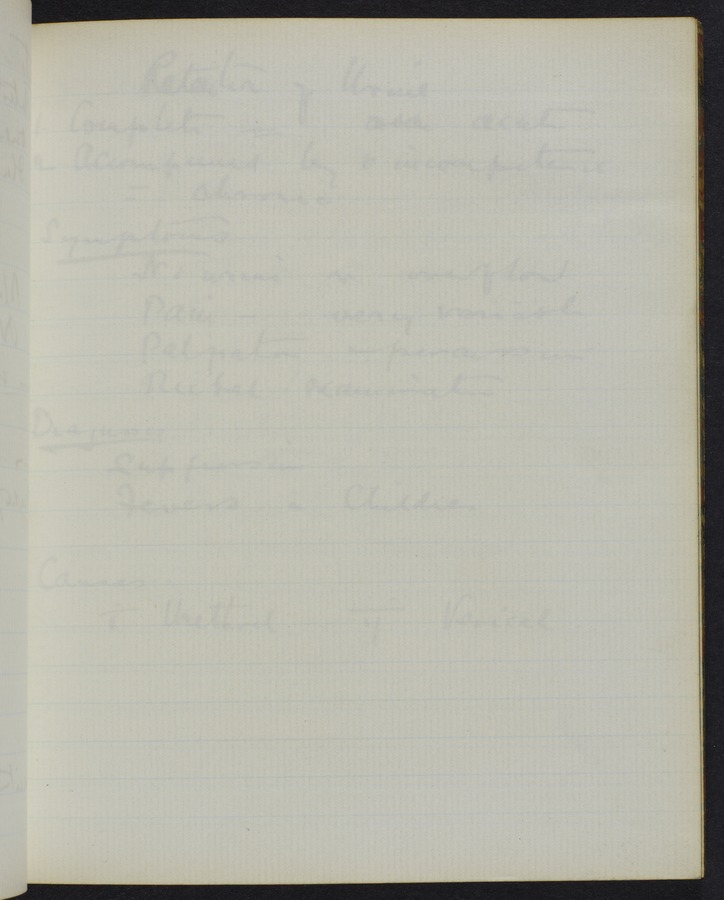 Retention of Urine
1 Complete — acute
2 Accompanied by incompetence
= chronic
Symptoms
No urine or overflow
Pain — very variable
Palpation — percussion
Rectal examination
Diagnosis
Suppression
Fevers in Children
Causes
I Urethral II Vesical